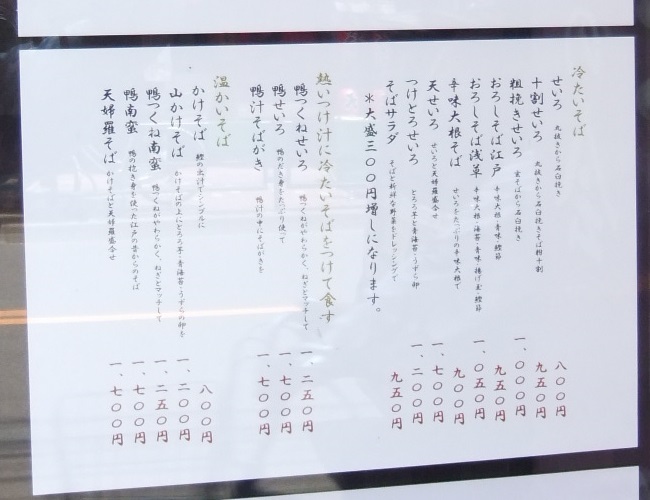 冷たいそば
せいろ 丸抜きから石臼挽き 八〇〇円
十割せいろ 丸抜きから石臼挽きそば粉十割 九五〇円
粗挽きせいろ 玄そばから石臼挽き 一、〇〇〇円
おろしそば江戸 辛味大根・青味・鰹節 九五〇円
おろしそば浅草 辛味大根・海苔・青味・揚げ玉・鰹節 一、〇五〇円
辛味大根そば せいろをたっぷりの辛味大根で 九〇〇円
天せいろ せいろと天婦羅盛合せ 一、七〇〇円
つけとろせいろ とろろ芋と青海苔・うずら卵 一、二〇〇円
そばサラダ そばと新鮮な野菜をドレッシングで 九五〇円
＊大盛三〇〇円増しになります。
熱いつけ汁に冷たいそばをつけて食す
鴨つくねせいろ 鴨つくねがやわらかく、ねぎとマッチして 一、二五〇円
鴨せいろ 鴨のだき身をたっぷり使って 一、七〇〇円
鴨汁そばがき 鴨汁の中にそばがきを 一、七〇〇円
温かいそば
かけそば 鰹の出汁でシンプルに 八〇〇円
山かけそば かけそばの上にとろろ芋・青海苔・うずらの卵を 一、二〇〇円
鴨つくね南蛮 鴨つくねがやわらかく、ねぎとマッチして 一、二五〇円
鴨南蛮 鴨の抱き身を使った江戸の昔からのそば 一、七〇〇円
天婦羅そば かけそばと天婦羅盛合せ 一、七〇〇円